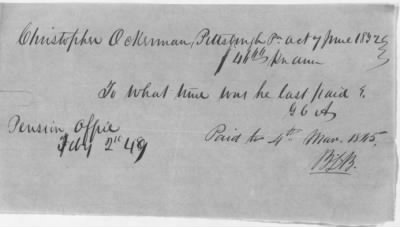 Christopher Ockerman, Pittsburgh Pa. act 7 June 1832
$ 46 66/100 pr ann
To what time was he last paid &.
G C A
Pension Office
July 2d 49
Paid to 4th Mar. 1845.